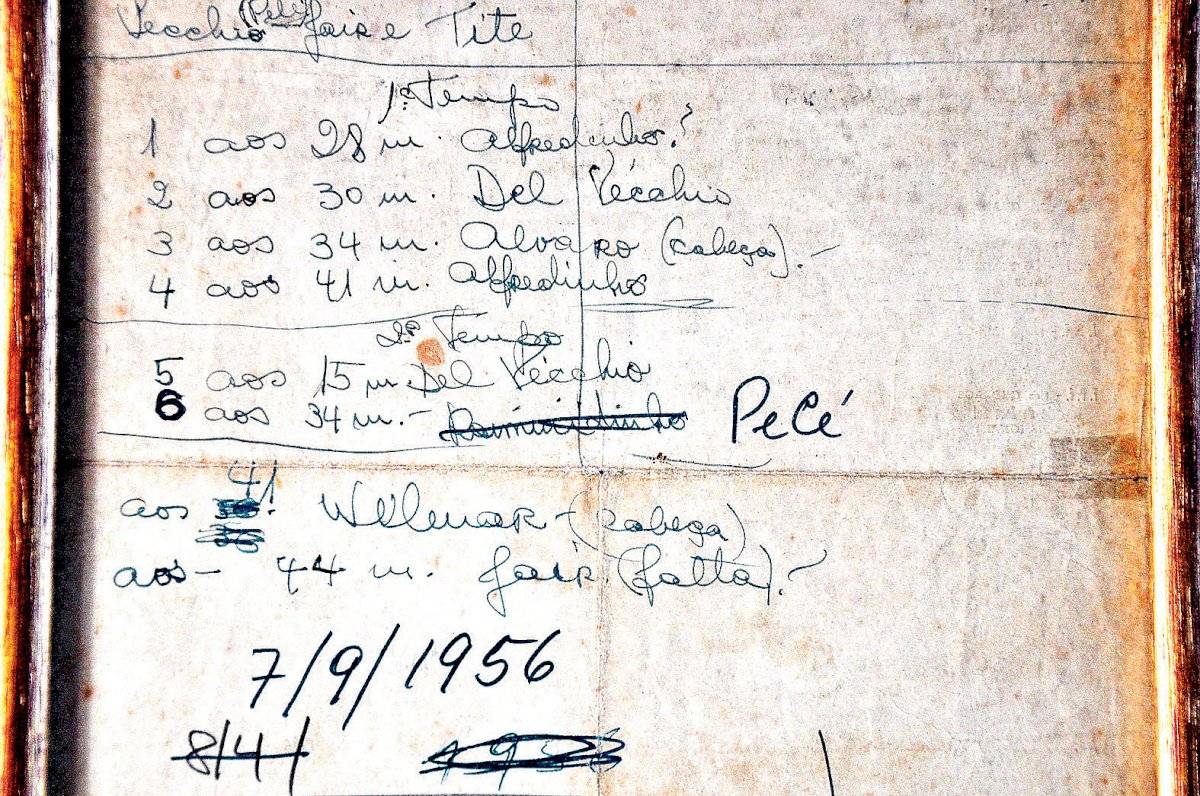 Vecchio (Pelé) Jair e Tite
1º Tempo
1 aos 28 m. Alfredinho.
2 aos 30 m. Del Vécchio
3 aos 34 m. Alvaro (cabeça).-
4 aos 41 m. Alfredinho
2º Tempo
5 aos 15 m. Del Vécchio
6 aos 34 m.- Raimundinho Pelé
aos 41! Wilmar - (cabeça)
aos - 44 m. Jair. (falta).-
7/9/1956
8/4/